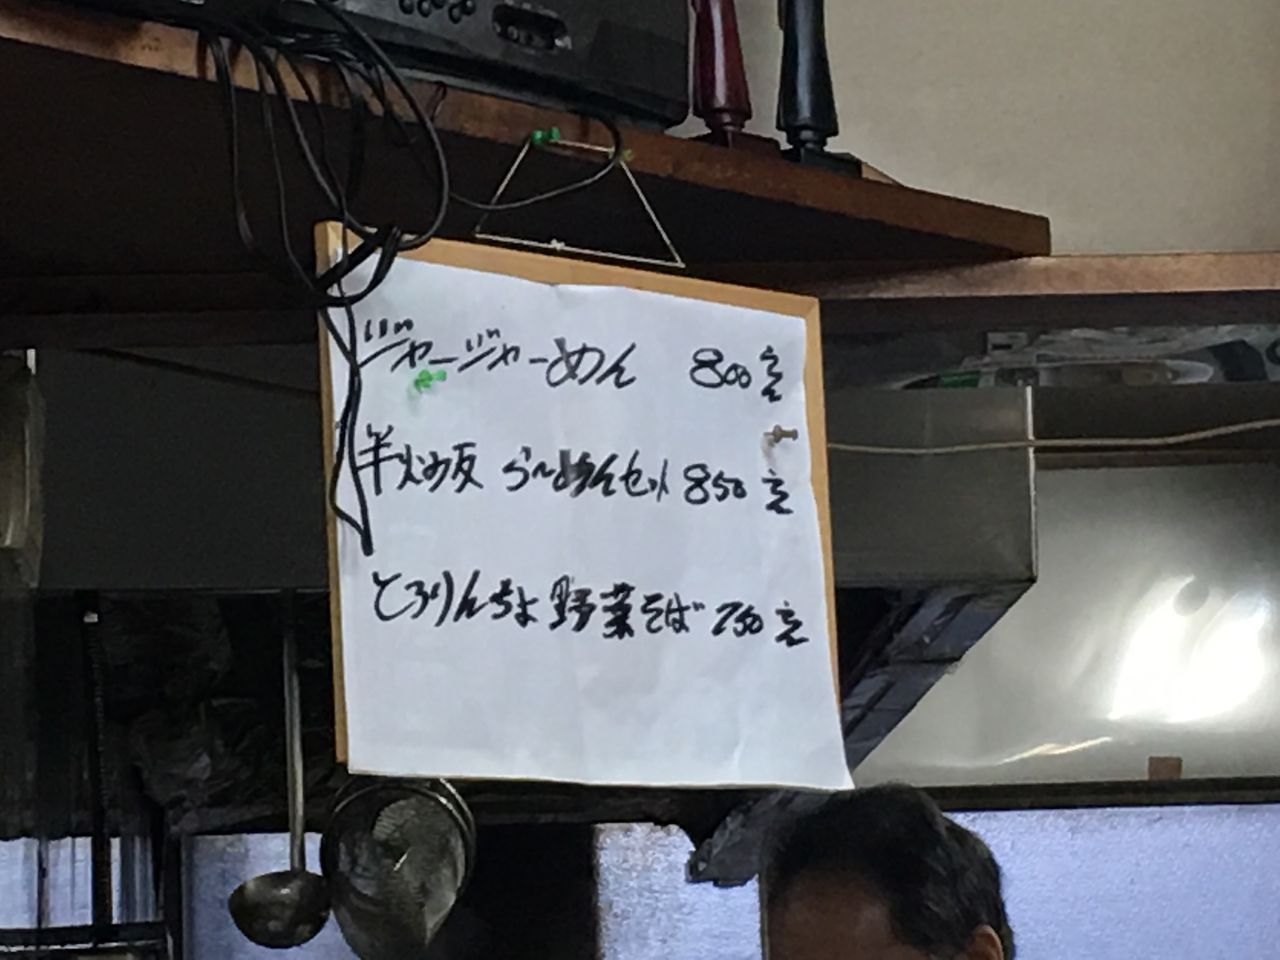 ジャージャーめん 800元
半炒反 らーめんセット 850元
とろりんちょ野菜そば 750元